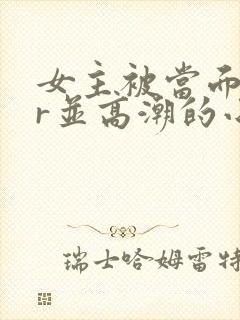 女主被當而
r並高潮的小
瑞士哈姆雷特